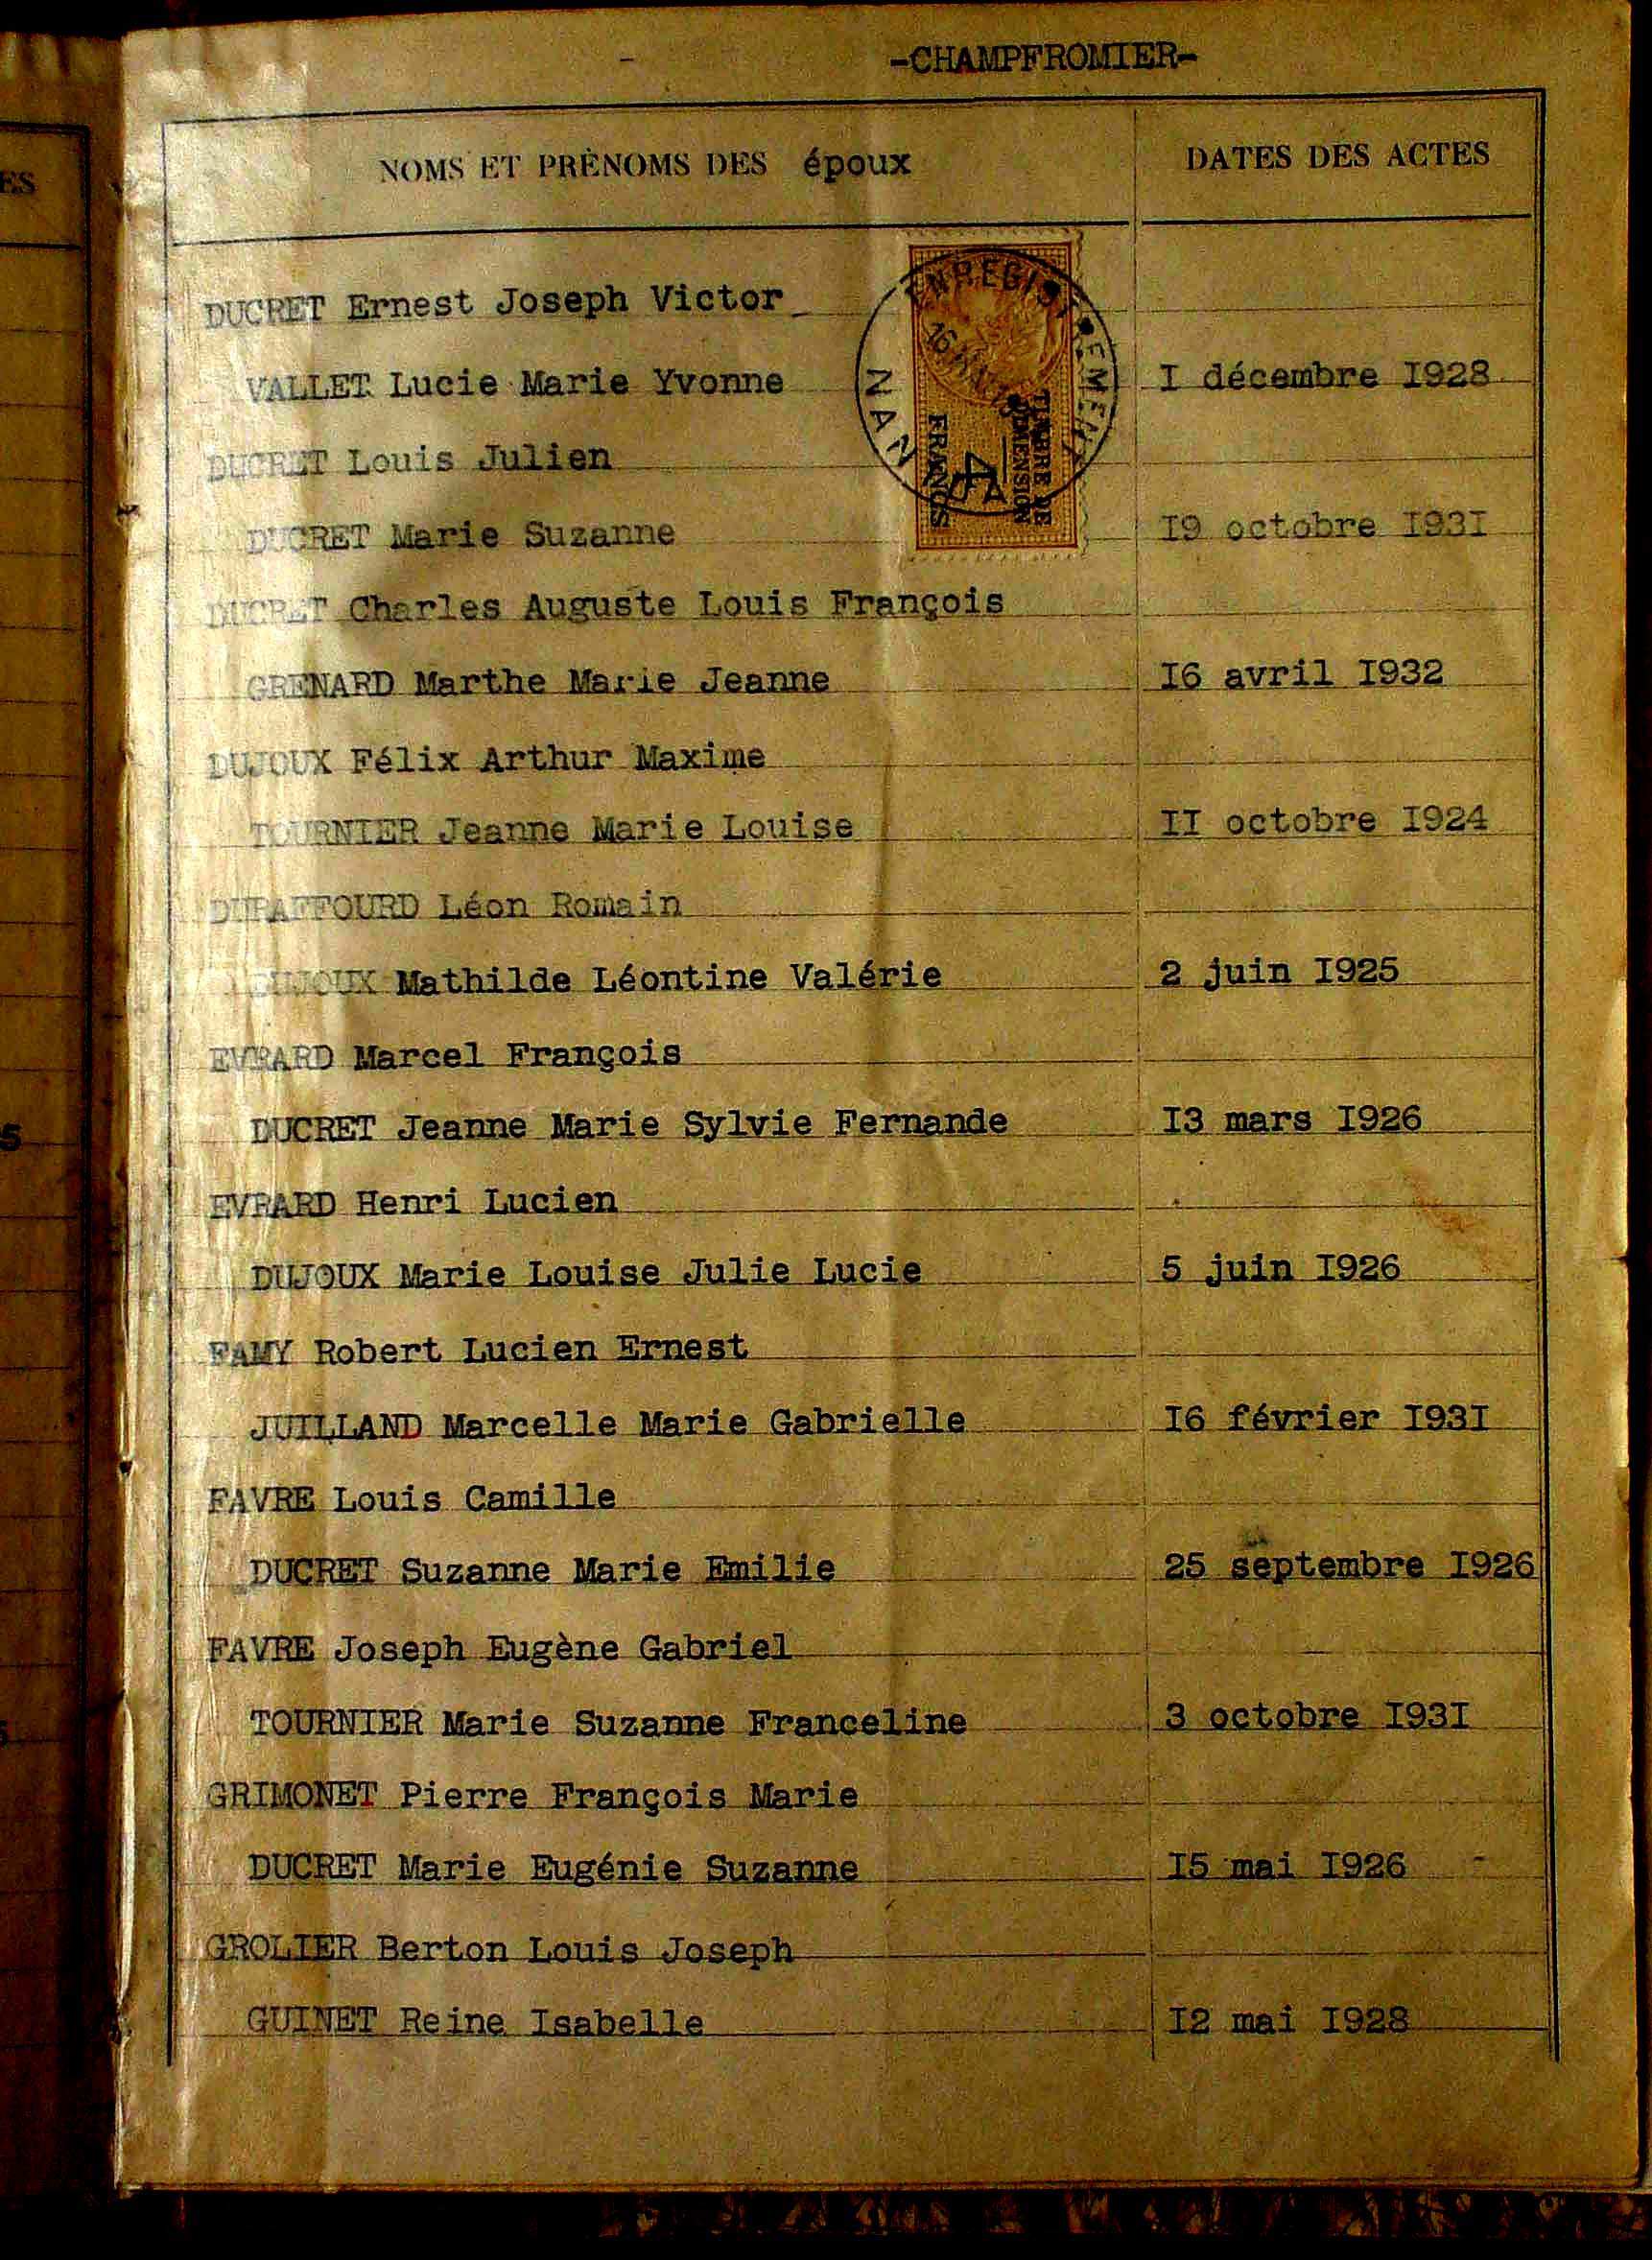 -CHAMPFROMIER-
NOMS ET PRÉNOMS DES époux DATES DES ACTES
ES
DUCRET Ernest Joseph Victor
VALLET Lucie Marie Yvonne I décembre I928
DUCRET Louis Julien
DUCRET Marie Suzanne I9 octobre I93I
DUCRET Charles Auguste Louis François
GRENARD Marthe Marie Jeanne I6 avril I932
DUJOUX Félix Arthur Maxime
TOURNIER Jeanne Marie Louise II octobre I924
DURAFFOURD Léon Romain
DUJOUX Mathilde Léontine Valérie 2 juin I925
EVRARD Marcel François
DUCRET Jeanne Marie Sylvie Fernande I3 mars I926
EVRARD Henri Lucien
DUJOUX Marie Louise Julie Lucie 5 juin I926
FAMY Robert Lucien Ernest
JUILLAND Marcelle Marie Gabrielle I6 février I93I
FAVRE Louis Camille
DUCRET Suzanne Marie Emilie 25 septembre I926
FAVRE Joseph Eugène Gabriel
TOURNIER Marie Suzanne Franceline 3 octobre I93I
GRIMONET Pierre François Marie
DUCRET Marie Eugénie Suzanne I5 mai I926
GROLIER Berton Louis Joseph
GUINET Reine Isabelle I2 mai I928
ENREGISTREMENT
NAN
TIMBRE DE
DIMENSION
4
FRANCS
5